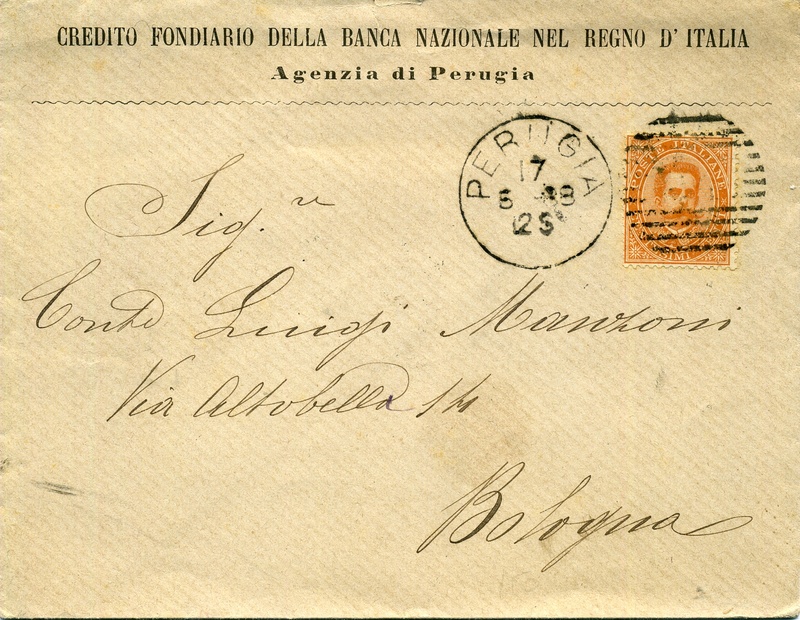 CREDITO FONDIARIO DELLA BANCA NAZIONALE NEL REGNO D' ITALIA
Agenzia di Perugia
PERUGIA
17
8S
POSTE ITALIANE
Sig.re
Conte Luigi Manzoni
Via Altobella 14
Bologna